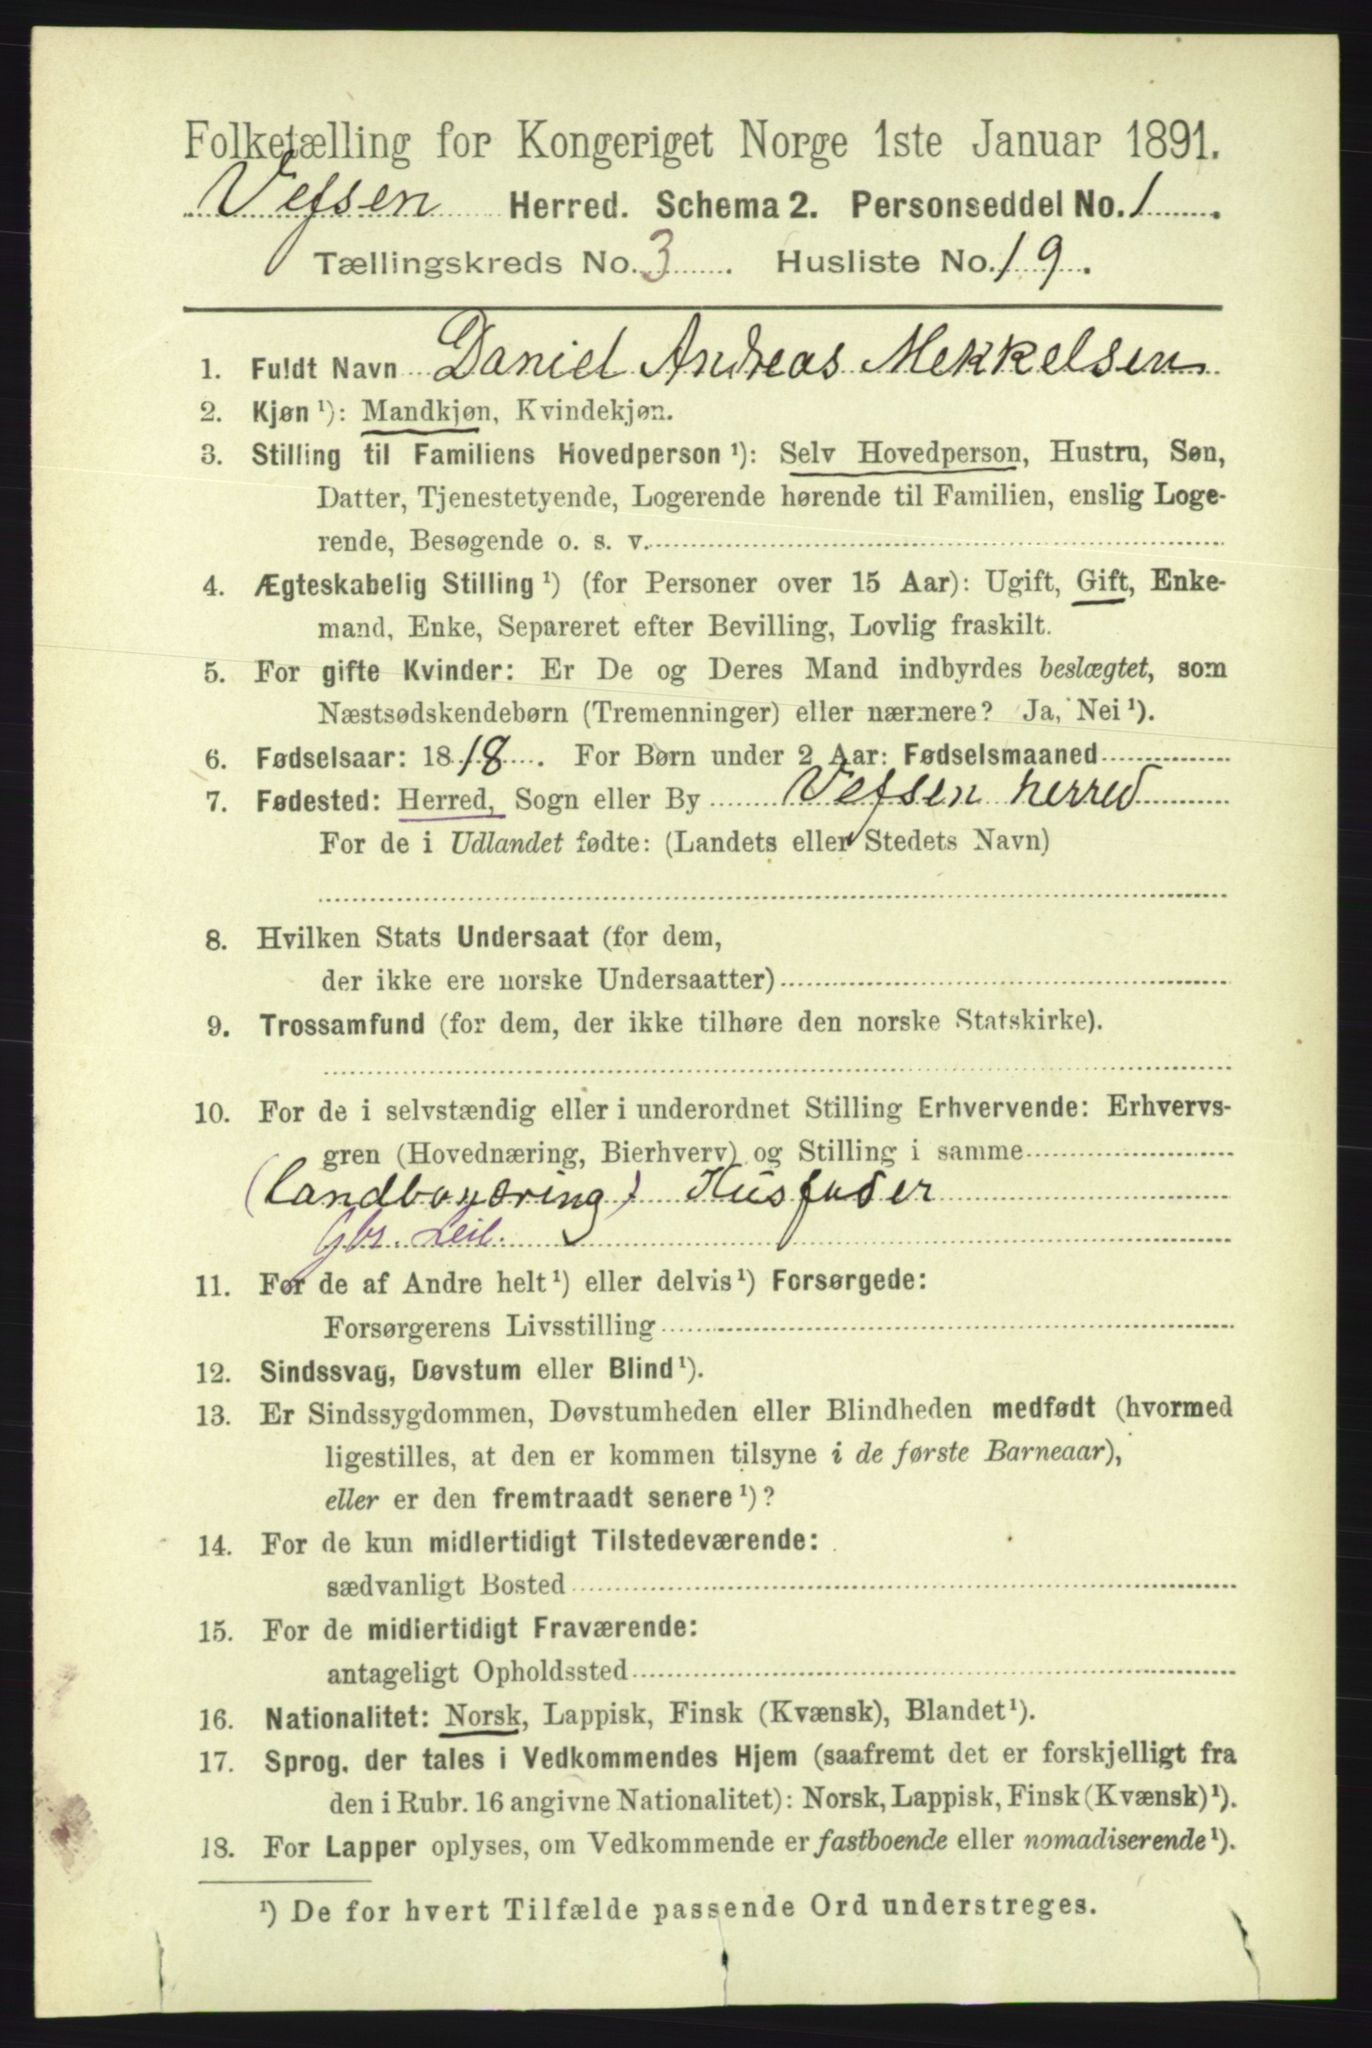 Folketælling for Kongeriget Norge 1ste Januar 1891.
Vefsen Herred. Schema 2. Personseddel No. 1
Tællingskreds No. 3 Husliste No. 19.
1. Fuldt Navn Daniel Andreas Mekkelsen
2. Kjøn ¹): Mandkjøn, Kvindekjøn.
3. Stilling til Familiens Hovedperson ¹): Selv Hovedperson, Hustru, Søn,
Datter, Tjenestetyende, Logerende hørende til Familien, enslig Loge-
rende, Besøgende o. s. v.
4. Ægteskabelig Stilling ¹) (for Personer over 15 Aar): Ugift, Gift, Enke-
mand, Enke, Separeret efter Bevilling, Lovlig fraskilt.
5. For gifte Kvinder: Er De og Deres Mand indbyrdes beslægtet, som
Næstsødskendebørn (Tremenninger) eller nærmere? Ja, Nei ¹).
6. Fødselsaar: 1818. For Børn under 2 Aar: Fødselsmaaned
7. Fødested: Herred, Sogn eller By Vefsen herred
For de i Udlandet fødte: (Landets eller Stedets Navn)
8. Hvilken Stats Undersaat (for dem,
der ikke ere norske Undersaatter)
9. Trossamfund (for dem, der ikke tilhøre den norske Statskirke).
10. For de i selvstændig eller i underordnet Stilling Erhvervende: Erhvervs-
gren (Hovednæring, Bierhverv) og Stilling i samme
(Landbonæring) Husfader
Gbr. Leil.
11. For de af Andre helt ¹) eller delvis ¹) Forsørgede:
Forsørgerens Livsstilling
12. Sindssvag, Døvstum eller Blind ¹).
13. Er Sindssygdommen, Døvstumheden eller Blindheden medfødt (hvormed
ligestilles, at den er kommen tilsyne i de første Barneaar),
eller er den fremtraadt senere ¹)?
14. For de kun midlertidigt Tilstedeværende:
sædvanligt Bosted
15. For de midlertidigt Fraværende:
antageligt Opholdssted
16. Nationalitet: Norsk, Lappisk, Finsk (Kvænsk), Blandet ¹).
17. Sprog, der tales i Vedkommendes Hjem (saafremt det er forskjelligt fra
den i Rubr. 16 angivne Nationalitet): Norsk, Lappisk, Finsk (Kvænsk) ¹).
18. For Lapper oplyses, om Vedkommende er fastboende eller nomadiserende ¹).
¹) De for hvert Tilfælde passende Ord understreges.